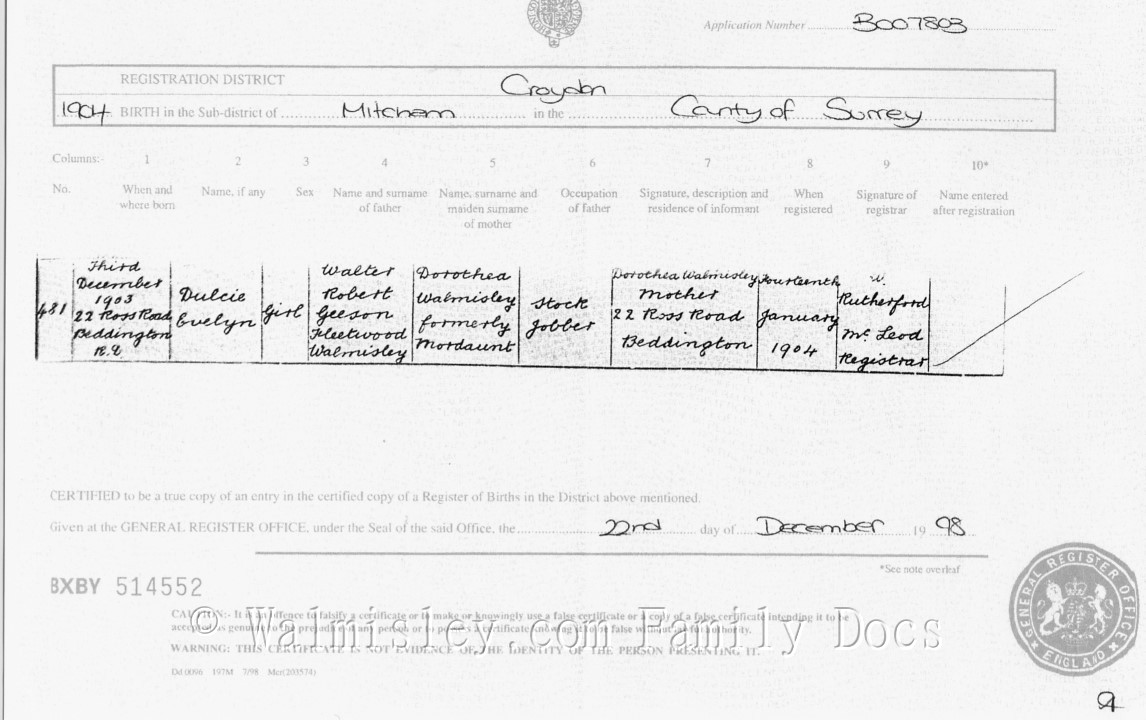 Application Number B007803
REGISTRATION DISTRICT Croydon
1904 BIRTH in the Sub-district of Mitcham in the County of Surrey
Columns:- 1 2 3 4 5 6 7 8 9 10*
No. When and where born Name, if any Sex Name and surname of father Name, surname and maiden surname of mother Occupation of father Signature, description and residence of informant When registered Signature of registrar Name entered after registration
481
Third
December
1903
22 Ross Road
Beddington
Dulcie
Evelyn
Girl
Walter
Robert
Geeson
Fleetwood
Walmisley
Dorothea
Walmisley
formerly
Mordaunt
Stock
Jobber
Dorothea Walmisley
Mother
22 Ross Road
Beddington
Fourteenth
January
1904
W.
Rutherford
Mc Leod
Registrar
CERTIFIED to be a true copy of an entry in the certified copy of a Register of Births in the District above mentioned.
Given at the GENERAL REGISTER OFFICE, under the Seal of the said Office, the 22nd day of December 19 98
*See note overleaf
BXBY 514552
CAUTION:- It is an offence to falsify a certificate or to make or knowingly use a false certificate or a copy of a false certificate intending it to be
accepted as genuine to the prejudice of any person or to possess a certificate knowing it to be false without lawful authority.
© Walmisley.com Family Docs
WARNING: THIS CERTIFICATE IS NOT EVIDENCE OF THE IDENTITY OF THE PERSON PRESENTING IT.
Dd 0096 197M 7/98 Mcr(203574)
GENERAL REGISTER OFFICE
ENGLAND